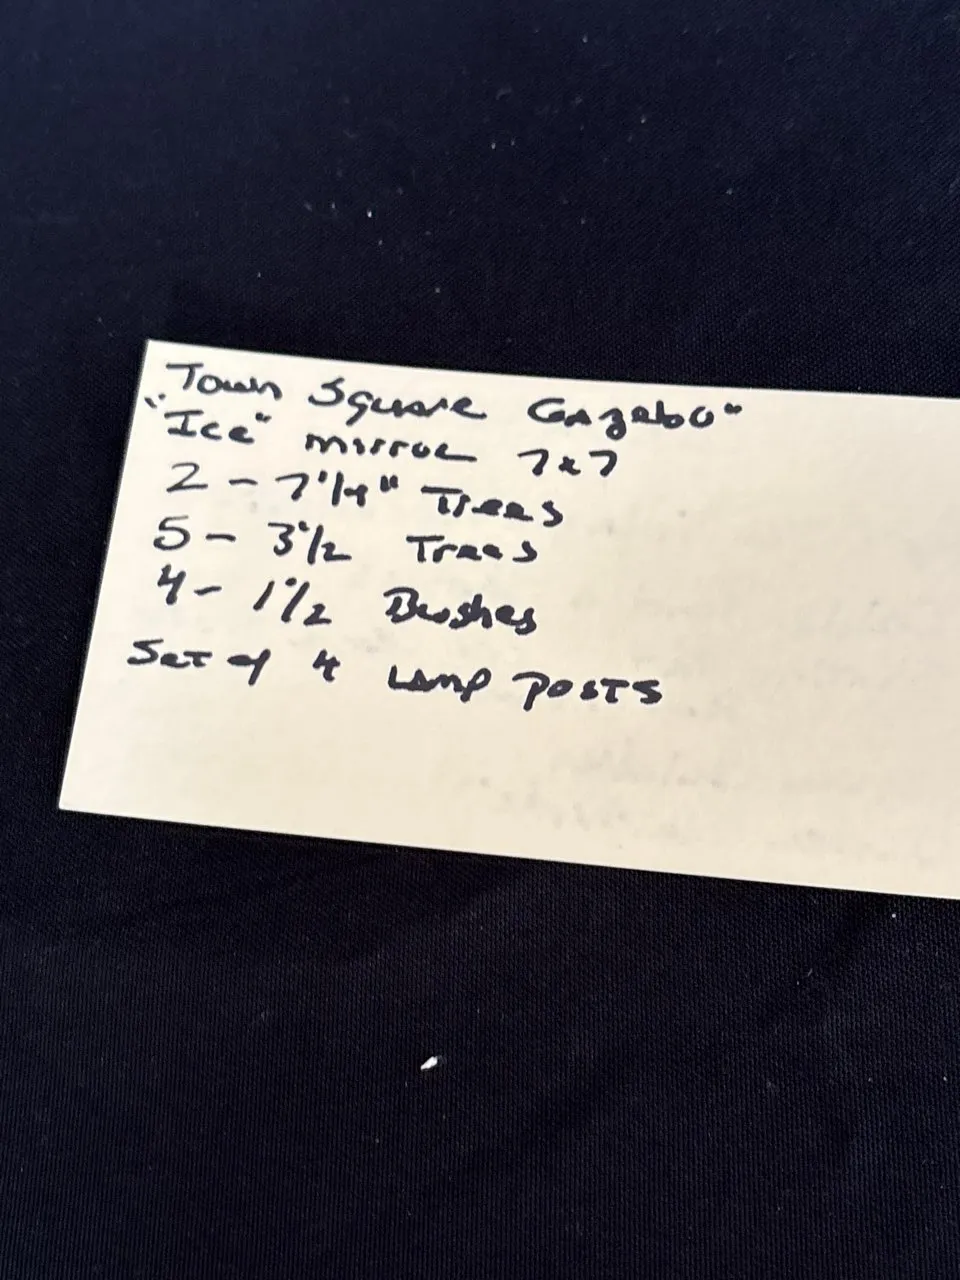 "Town Square Gazebo"
"Ice" mirror 7x7
2 - 7 1/4" Trees
5 - 3 1/2 Trees
4 - 1 1/2 Bushes
Set of 4 Lamp Posts